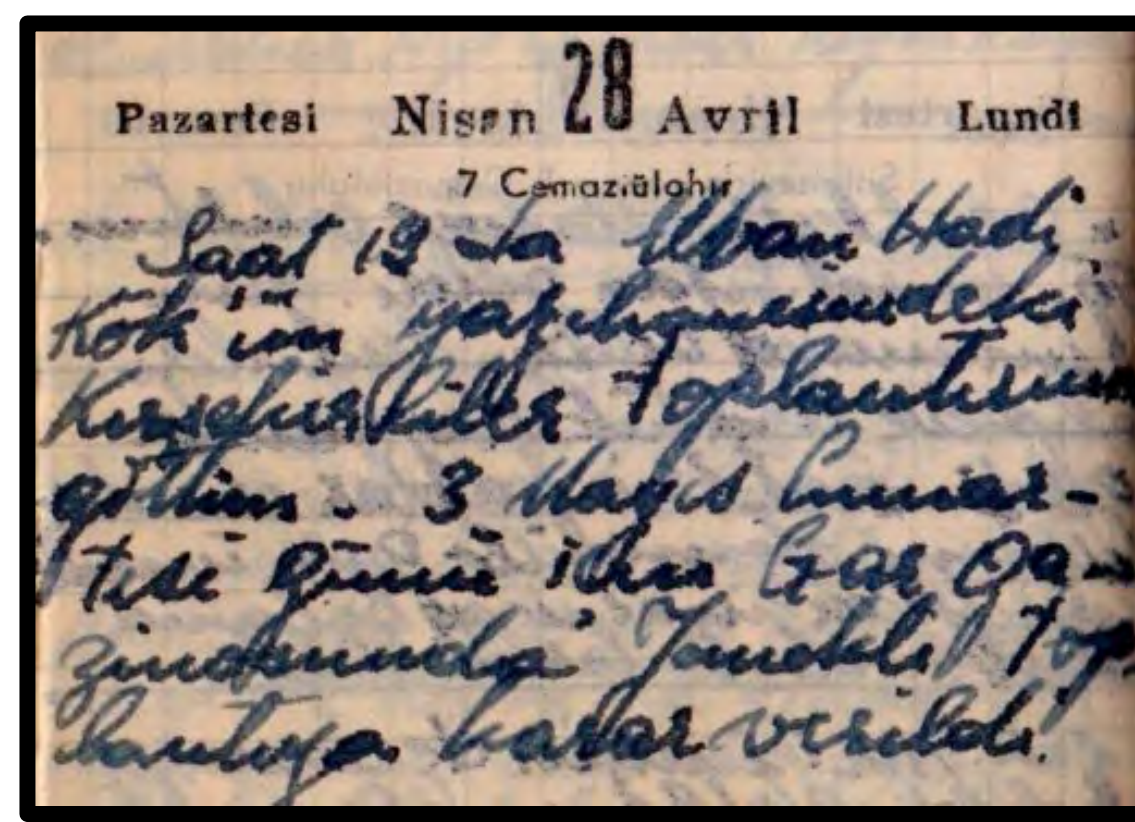 Pazartesi Nisan 28 Avril Lundi
7 Cemaziülohır
Saat 19 da Hadi
Kök'ün yazıhanesindeki
Kırşehirliler Toplantısına
gittim. 3 Mayıs Cumar-
tesi günü için Gar Ga-
zinosunda Yemekli Top-
lantıya karar verildi.